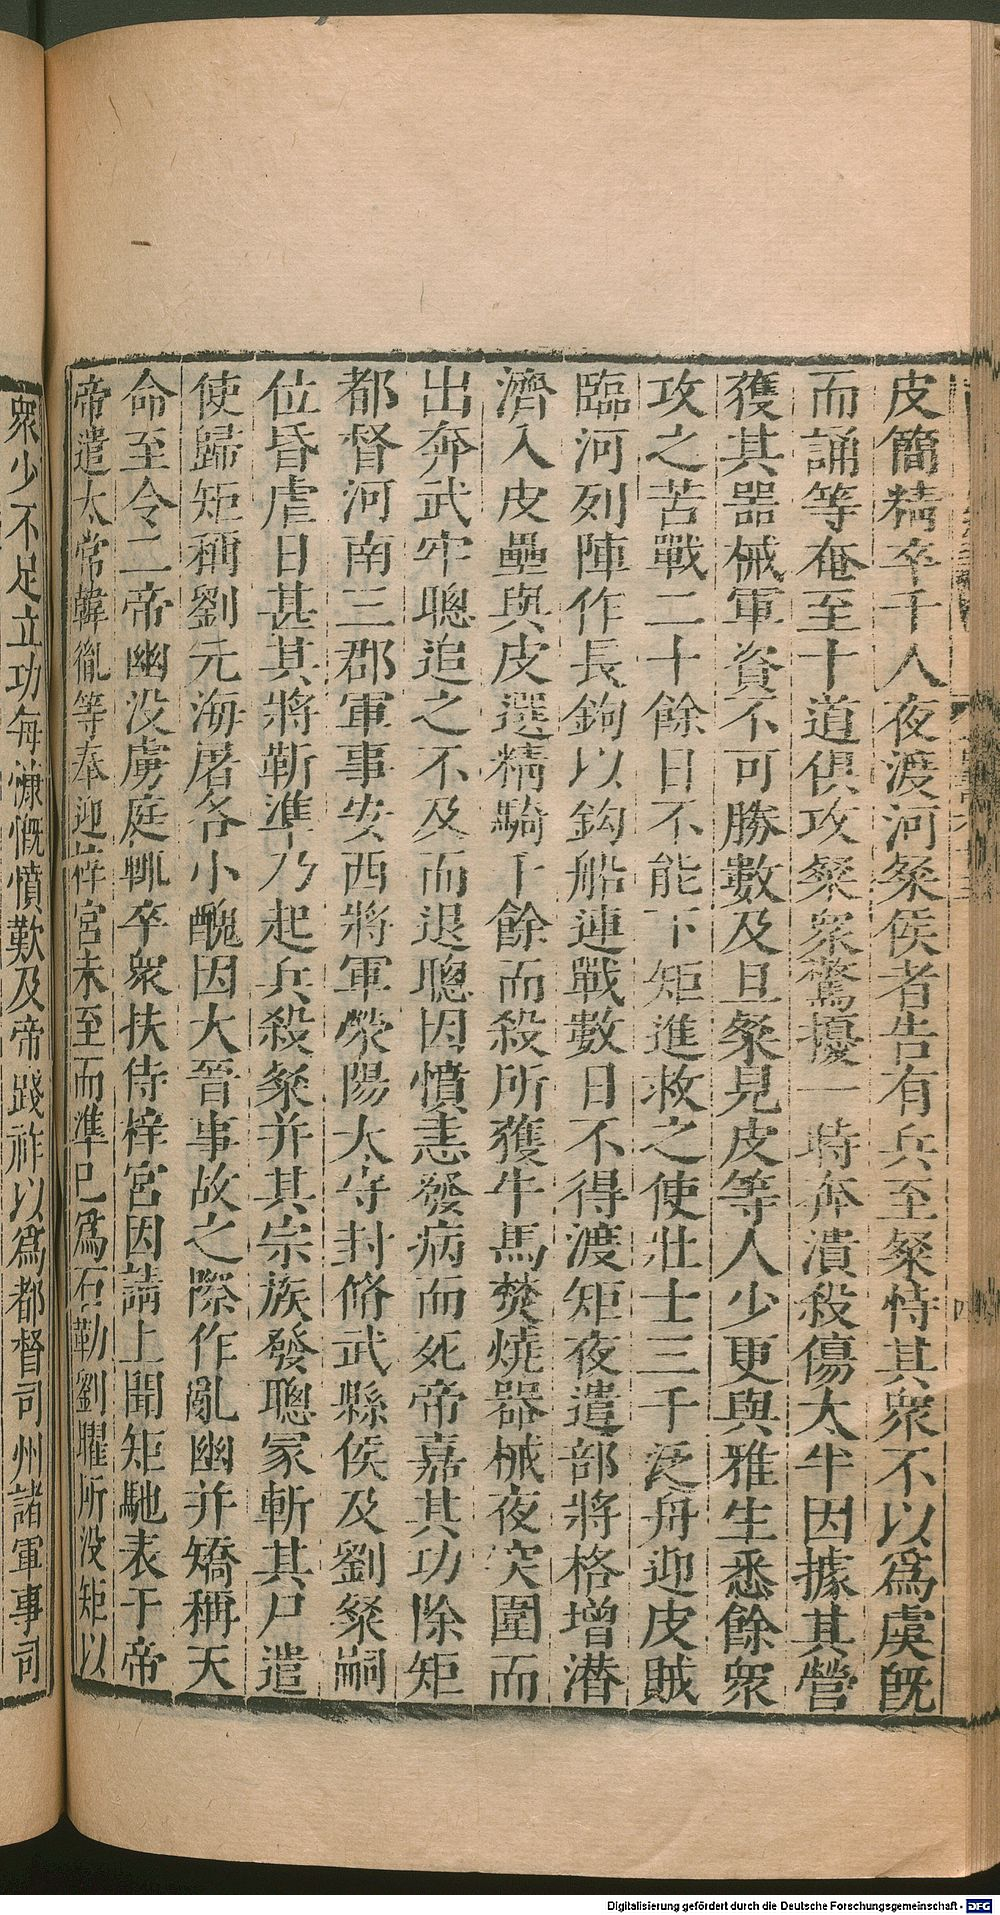 皮簡精卒千人夜渡河粲候者告有兵至粲恃其衆不以爲虞既
而誦等奄至十道俱攻粲衆驚擾一時奔潰殺傷太半因據其營
獲其器械軍資不可勝數及旦粲見皮等人少更與雅生悉餘衆
攻之苦戰二十餘日不能下矩進救之使壯士三千泛舟迎皮賊
臨河列陣作長鉤以鈎船連戰數日不得渡矩夜遣部將格增潜
濟入皮壘與皮選精騎千餘而殺所獲牛馬焚燒器械夜突圍而
出奔武牢聰追之不及而退聰因憤恚發病而死帝嘉其功除矩
都督河南三郡軍事安西將軍滎陽太守封脩武縣侯及劉粲嗣
位昏虐日甚其將靳準乃起兵殺粲并其宗族發聰冢斬其尸遣
使歸矩稱劉元海屠各小醜因大晉事故之際作亂幽并矯稱天
命至令二帝幽没虜庭輒卒衆扶侍梓宮因請上聞矩馳表于帝
帝遣太常韓胤等奉迎梓宮未至而準已爲石勒劉曜所没矩以
衆少不足立功每慷慨憤歎及帝踐祚以爲都督司州諸軍事司
Digitalisierung gefördert durch die Deutsche Forschungsgemeinschaft - DFG